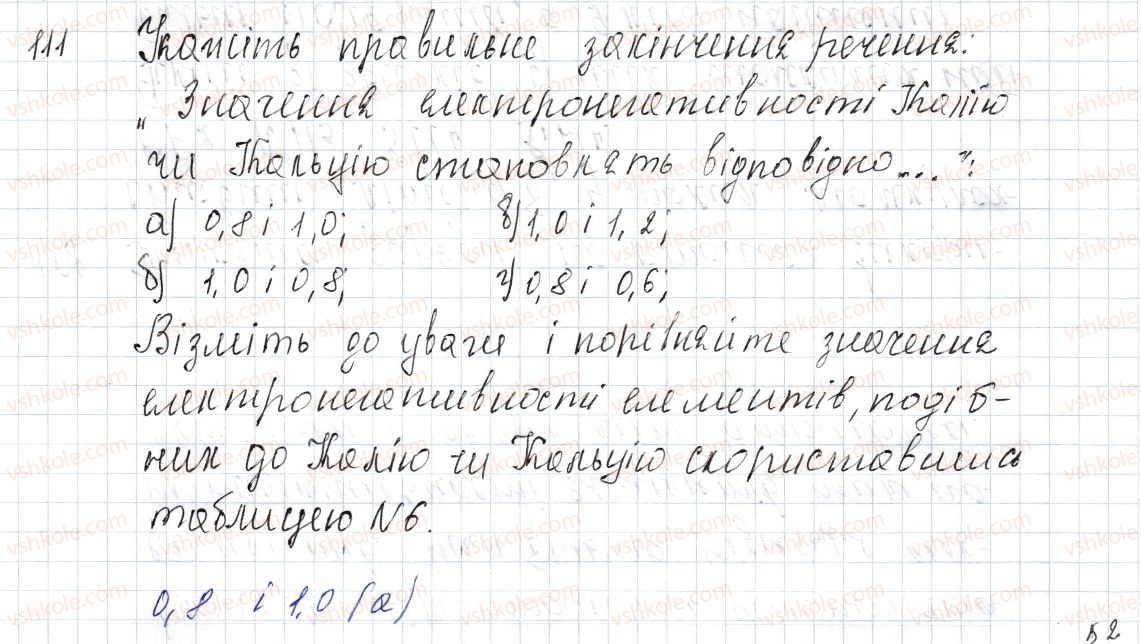 111 Укажіть правильне закінчення речення:
„Значення електронегативності Калію
чи Кальцію становлять відповідно...":
а) 0,8 і 1,0; в) 1,0 і 1,2;
б) 1,0 і 0,8; г) 0,8 і 0,6;
Візміть до уваги і порівняйте значення
електронегативності елементів, подіб-
них до Калію чи Кальцію скориставшись
таблицею №6.
0,8 і 1,0 (а)